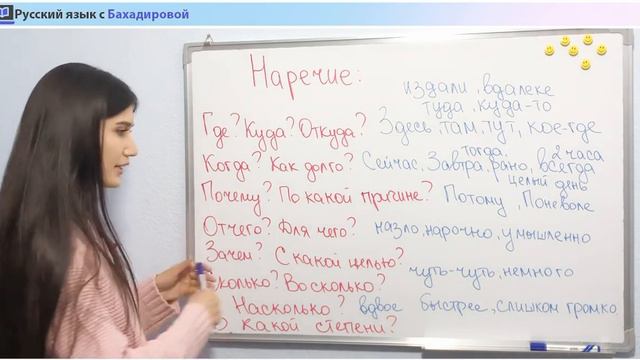 Русский язык с Бахадировой
Наречие:
издали, вдалеке
туда, куда-то
Где? Куда? Откуда? Здесь, там, тут, кое-где
тогда, 2 часа
Когда? Как долго? Сейчас, Завтра, рано, всегда
целый день
Почему? По какой причине? Потому, Поневоле
Отчего? Для чего? назло, нарочно, умышленно
Зачем? С какой целью?
чуть-чуть, немного
сколько? Во сколько?
Насколько? вдвое быстрее, слишком громко
какой степени?